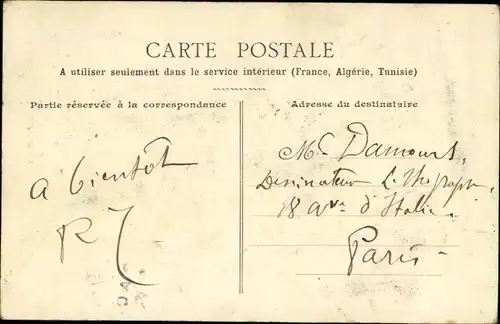 CARTE POSTALE
A utiliser seulement dans le service intérieur (France, Algérie, Tunisie)
Partie réservée à la correspondance
Adresse du destinataire
à bientôt
Mr Damours,
Dessinateur Lithograph
18 Ave d'Italie.
Paris